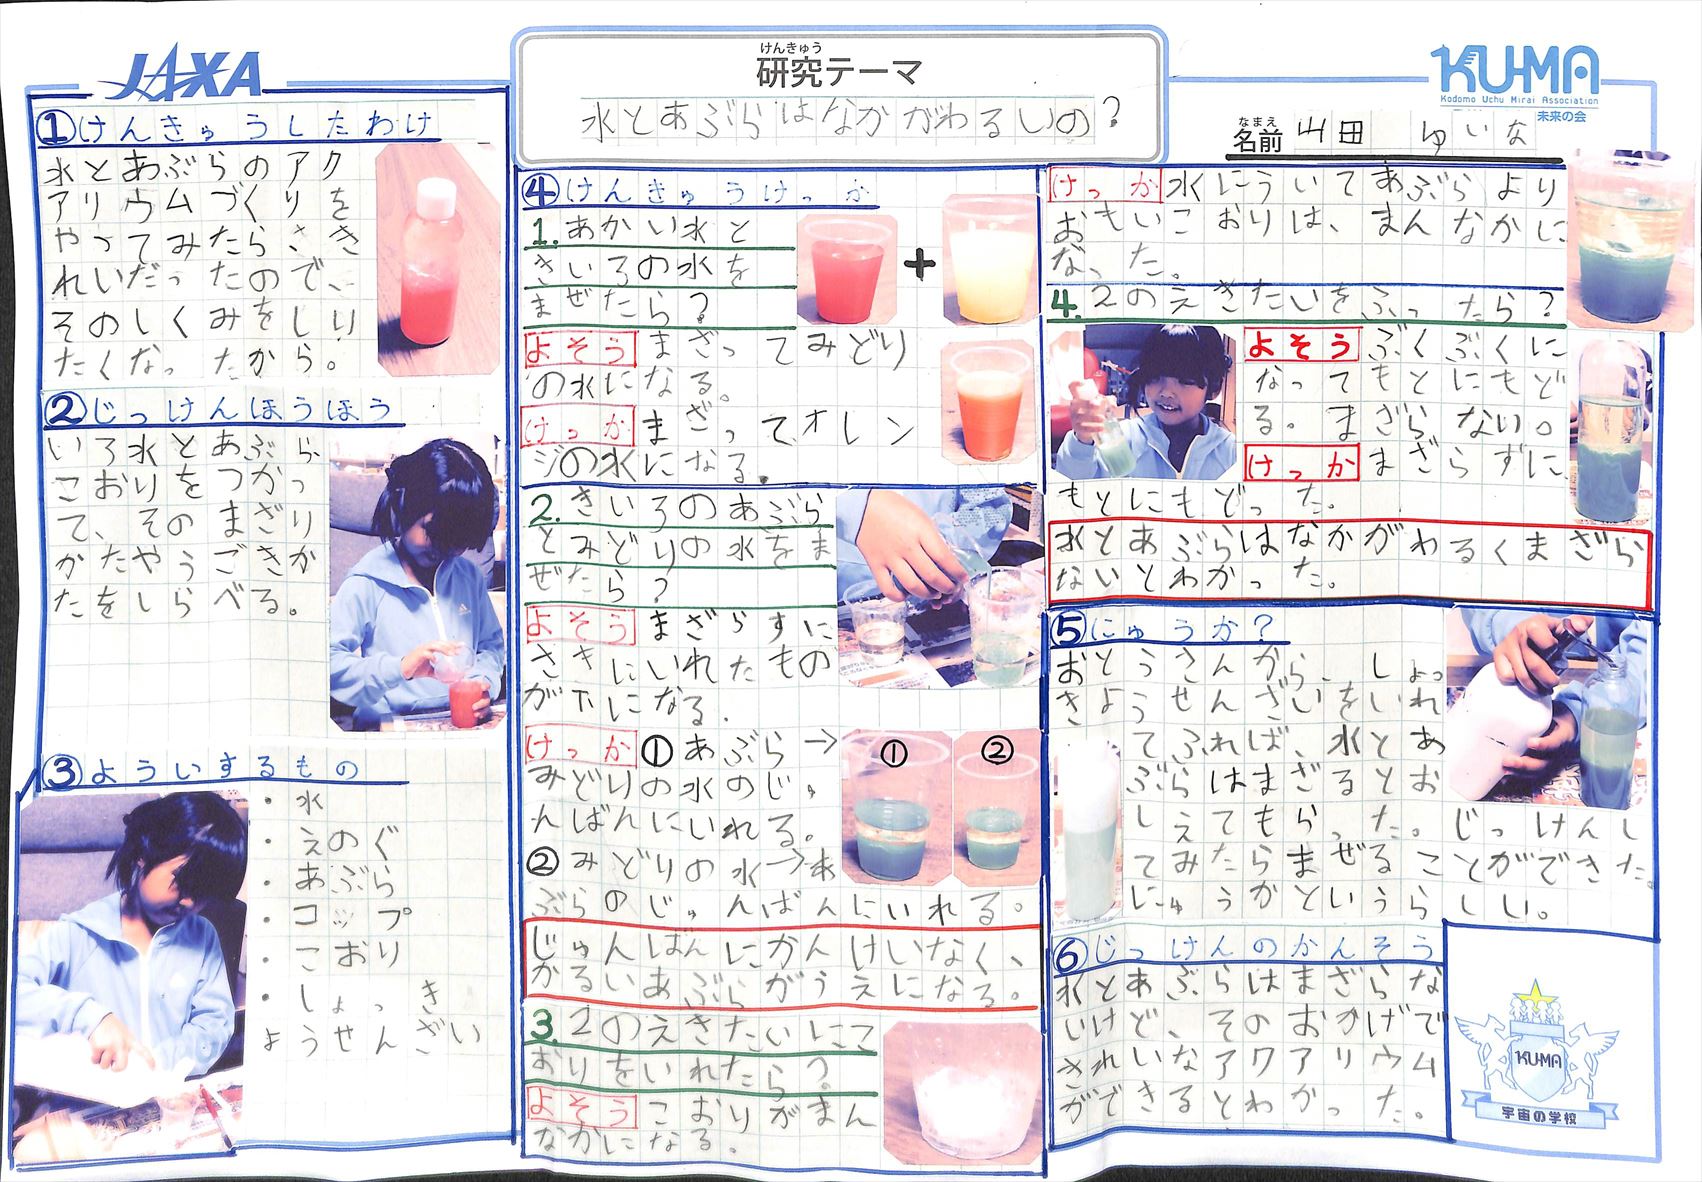 JAXA
けんきゅう
研究テーマ
水とあぶらはなかがわるいの？
KU-MA
Kodomo Uchu Mirai Association
未来の会
なまえ
名前 山田 ゆいな
①けんきゅうしたわけ
水とあぶらのアク
アリウムづくりを
やってみたらさき
れいだったので、
そのしくみをしり
たくなったから。
②じっけんほうほう
いろ水とあぶら
こおりをつかっ
て、そのまざり
かたやうごきか
たをしらべる。
③よういするもの
・水
・えのぐ
・あぶら
・コップ
・こおり
・しょっき
ようせんざい
④けんきゅうけっか
1.あかい水と
きいろの水を
まぜたら？
+
よそう まざってみどり
の水になる。
けっか まざって、オレン
ジの水になる。
2.きいろのあぶら
とみどりの水をま
ぜたら？
よそう まざらすに
さきにいれたもの
が下になる。
けっか ①あぶら→
みどりの水のじゅ
んばんにいれる。
②みどりの水→あ
ぶらのじゅんばんにいれる。
① ②
じゅんばんにかんけいなく、
かるいあぶらがうえになる。
3.2のえきたいにこ
おりをいれたら？
よそう こおりがまん
なかになる。
けっか 水にういてあぶらより
おもいこおりは、まんなかに
なった。
4.2のえきたいをふったら？
よそう ぶくぶくに
なってもとにもど
る。まざらない。
けっか まざらずに
もとにもどった。
水とあぶらはなかがわるくまざら
ないとわかった。
⑤にゅうか？
おとうさんから、しょっ
きようせんざいをいれ
てふれば、水とあ
ぶらはまざるとお
しえてもらった。じっけんし
てみたらまぜることができた。
にゅうかというらしい。
⑥じっけんのかんそう
水とあぶらはまざらな
いけど、そのおかげで
きれいなアクアリウム
ができるとわかった。
KU-MA
宇宙の学校